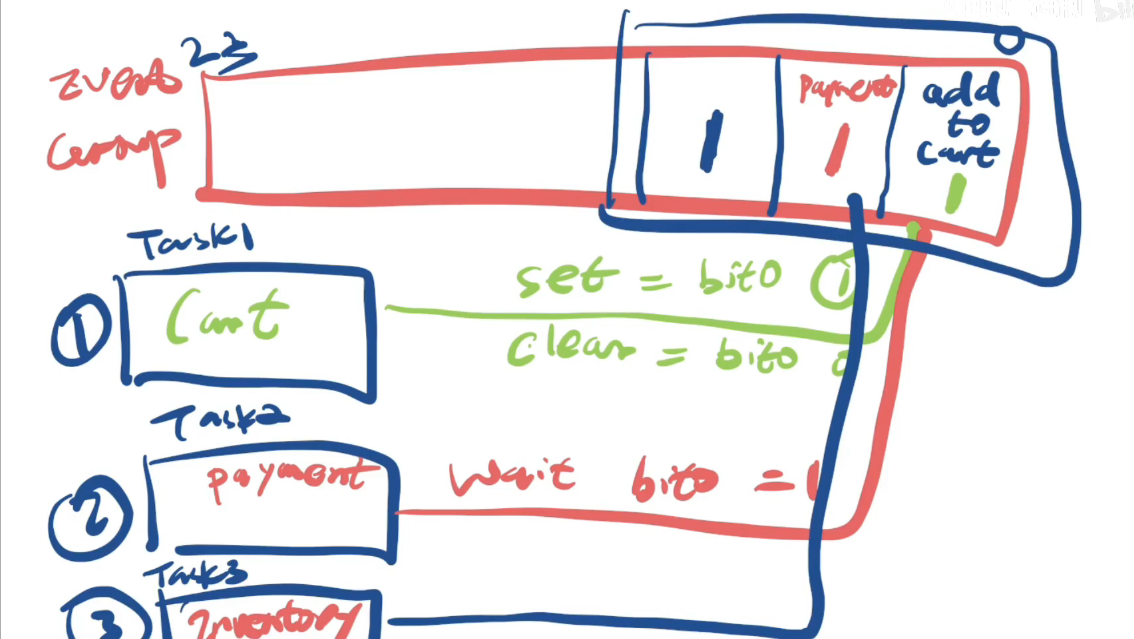 23
Event
Group
Payment
add
to
cart
1
1
1
0
Task1
①
Cart
set = bit0 ①
clear = bit0 0
Task2
②
payment
wait bit0 = 1
Task3
③
Inventory